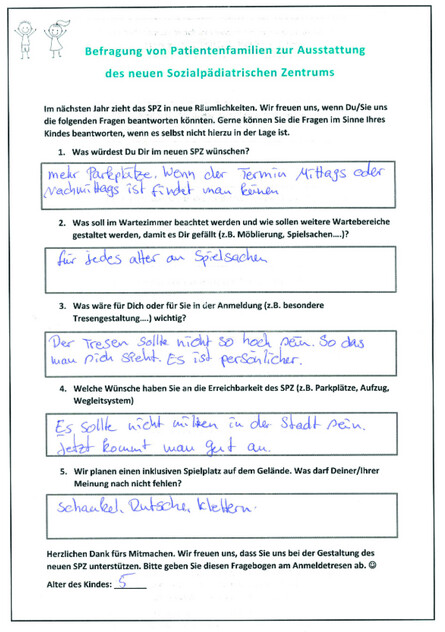 Befragung von Patientenfamilien zur Ausstattung
des neuen Sozialpädiatrischen Zentrums
Im nächsten Jahr zieht das SPZ in neue Räumlichkeiten. Wir freuen uns, wenn Du/Sie uns
die folgenden Fragen beantworten könnten. Gerne können Sie die Fragen im Sinne Ihres
Kindes beantworten, wenn es selbst nicht hierzu in der Lage ist.
1. Was würdest Du Dir im neuen SPZ wünschen?
mehr Parkplätze. Wenn der Termin Mittags oder
Nachmittags ist findet man keinen
2. Was soll im Wartezimmer beachtet werden und wie sollen weitere Wartebereiche
gestaltet werden, damit es Dir gefällt (z.B. Möblierung, Spielsachen....)?
für jedes alter an Spielsachen
3. Was wäre für Dich oder für Sie in der Anmeldung (z.B. besondere
Tresengestaltung....) wichtig?
Der Tresen sollte nicht so hoch sein. So das
man sich sieht. Es ist persönlicher.
4. Welche Wünsche haben Sie an die Erreichbarkeit des SPZ (z.B. Parkplätze, Aufzug,
Wegleitsystem)
Es sollte nicht mitten in der Stadt sein.
Jetzt kommt man gut an.
5. Wir planen einen inklusiven Spielplatz auf dem Gelände. Was darf Deiner/Ihrer
Meinung nach nicht fehlen?
Schaukel, Rutsche, Klettern.
Herzlichen Dank fürs Mitmachen. Wir freuen uns, dass Sie uns bei der Gestaltung des
neuen SPZ unterstützen. Bitte geben Sie diesen Fragebogen am Anmeldetresen ab. ☺
Alter des Kindes: 5